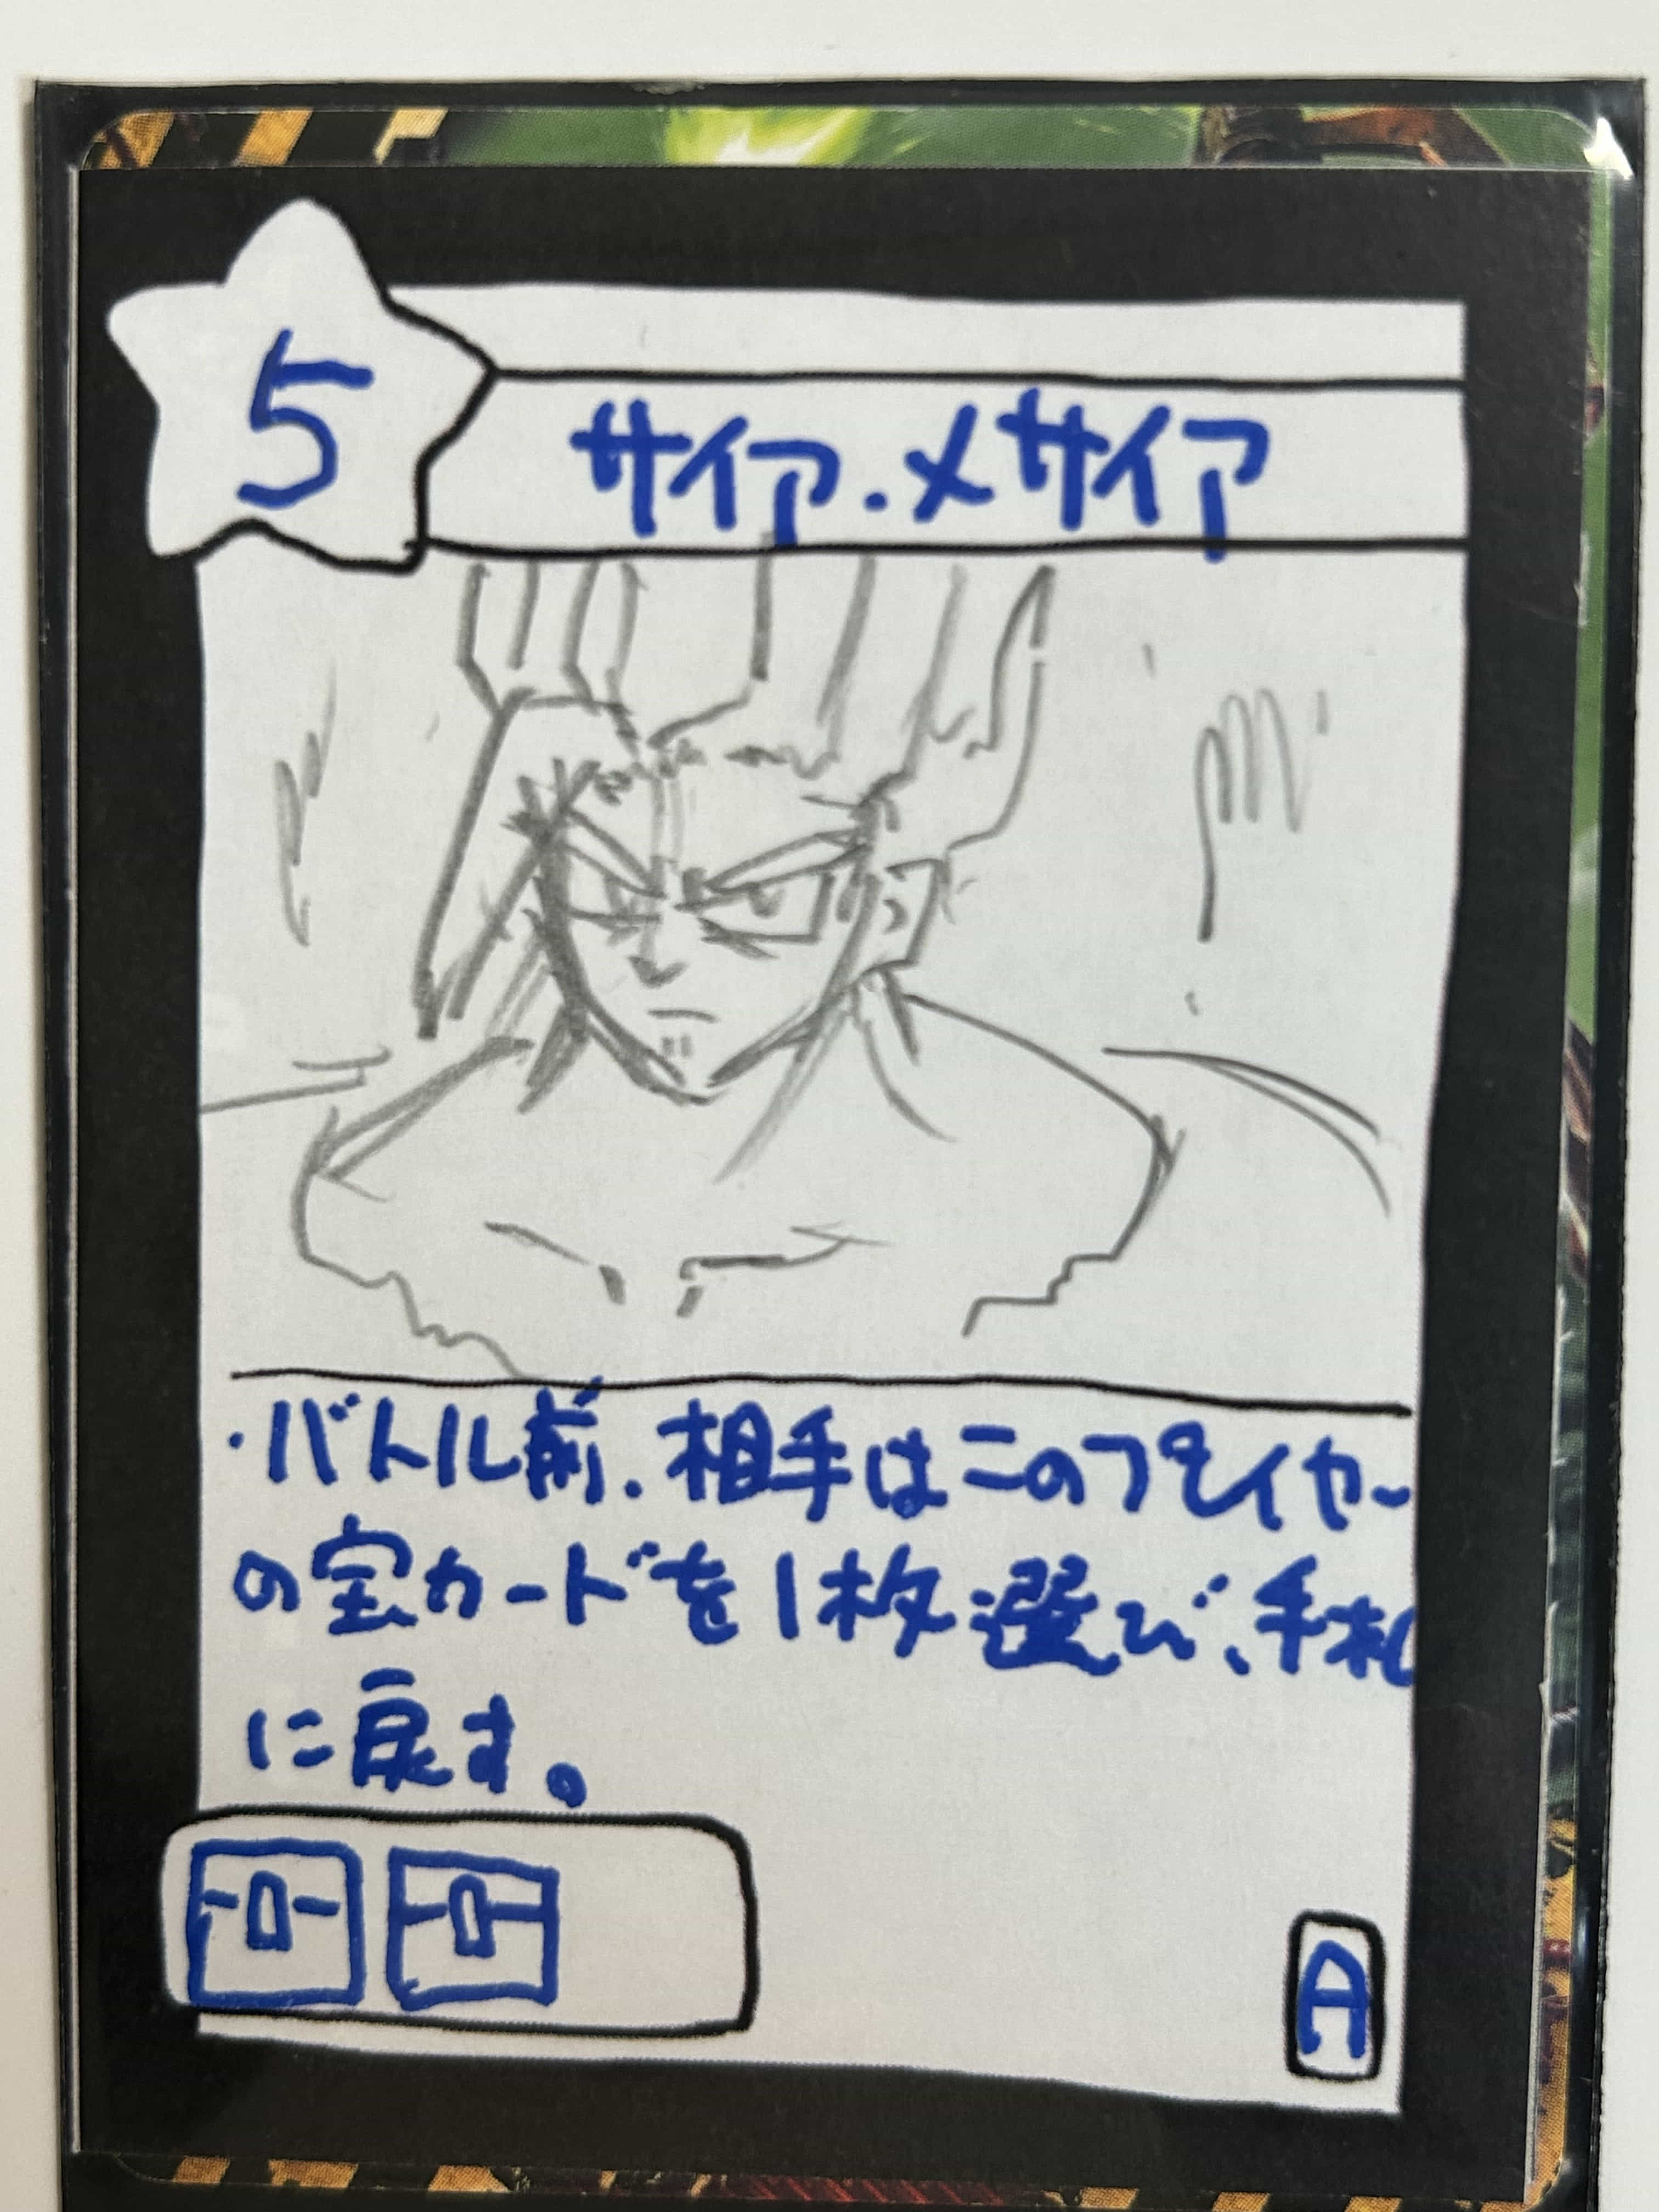 5
サイア・メサイア
・バトル前、相手はこのプレイヤー
の宝カードを1枚選び、手札
に戻す。
A